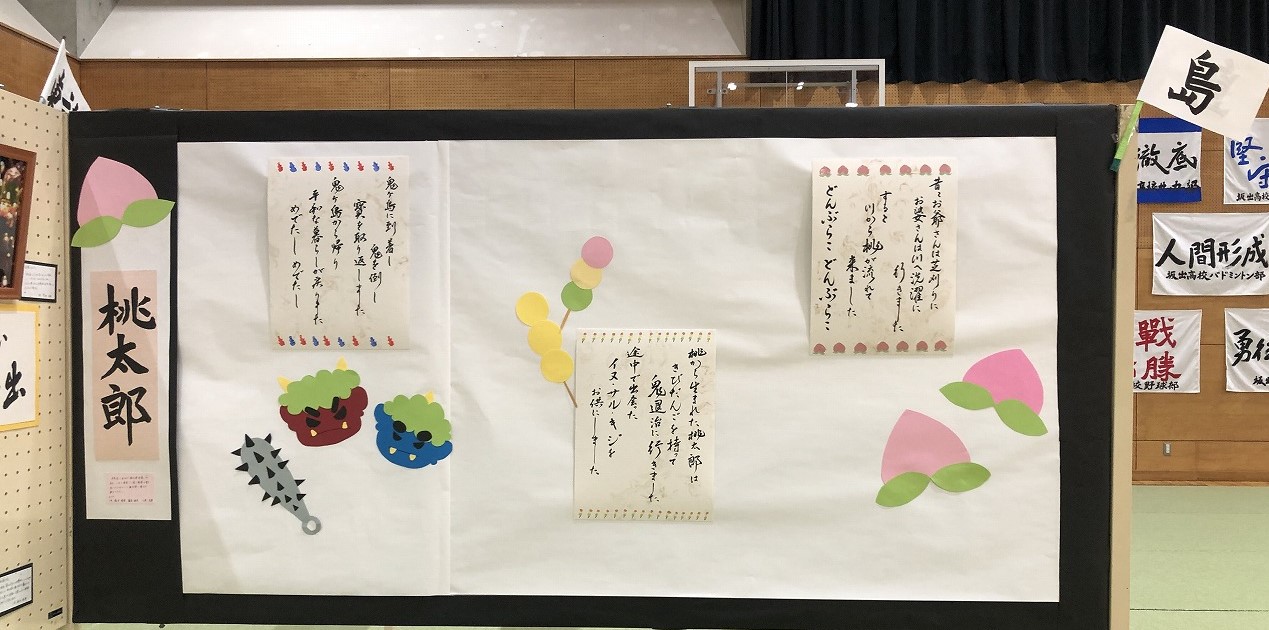 島
桃太郎
昔々お爺さんは芝刈りに
お婆さんは川へ洗濯に
行きました
すると
川から桃が流れて
来ました
どんぶらこどんぶらこ
桃から生まれた桃太郎は
きびだんごを持って
鬼退治に行きました
途中で出会った
イヌ・サル・キジを
お供にしました
鬼ヶ島に到着し
鬼を倒し
寶を取り返しました
鬼ヶ島から帰り
平和な暮らしが戻りました
めでたしめでたし
徹底
堅守
坂出高校
人間形成
坂出高校バドミントン部
戰勝
校野球部
勇往
坂出
出